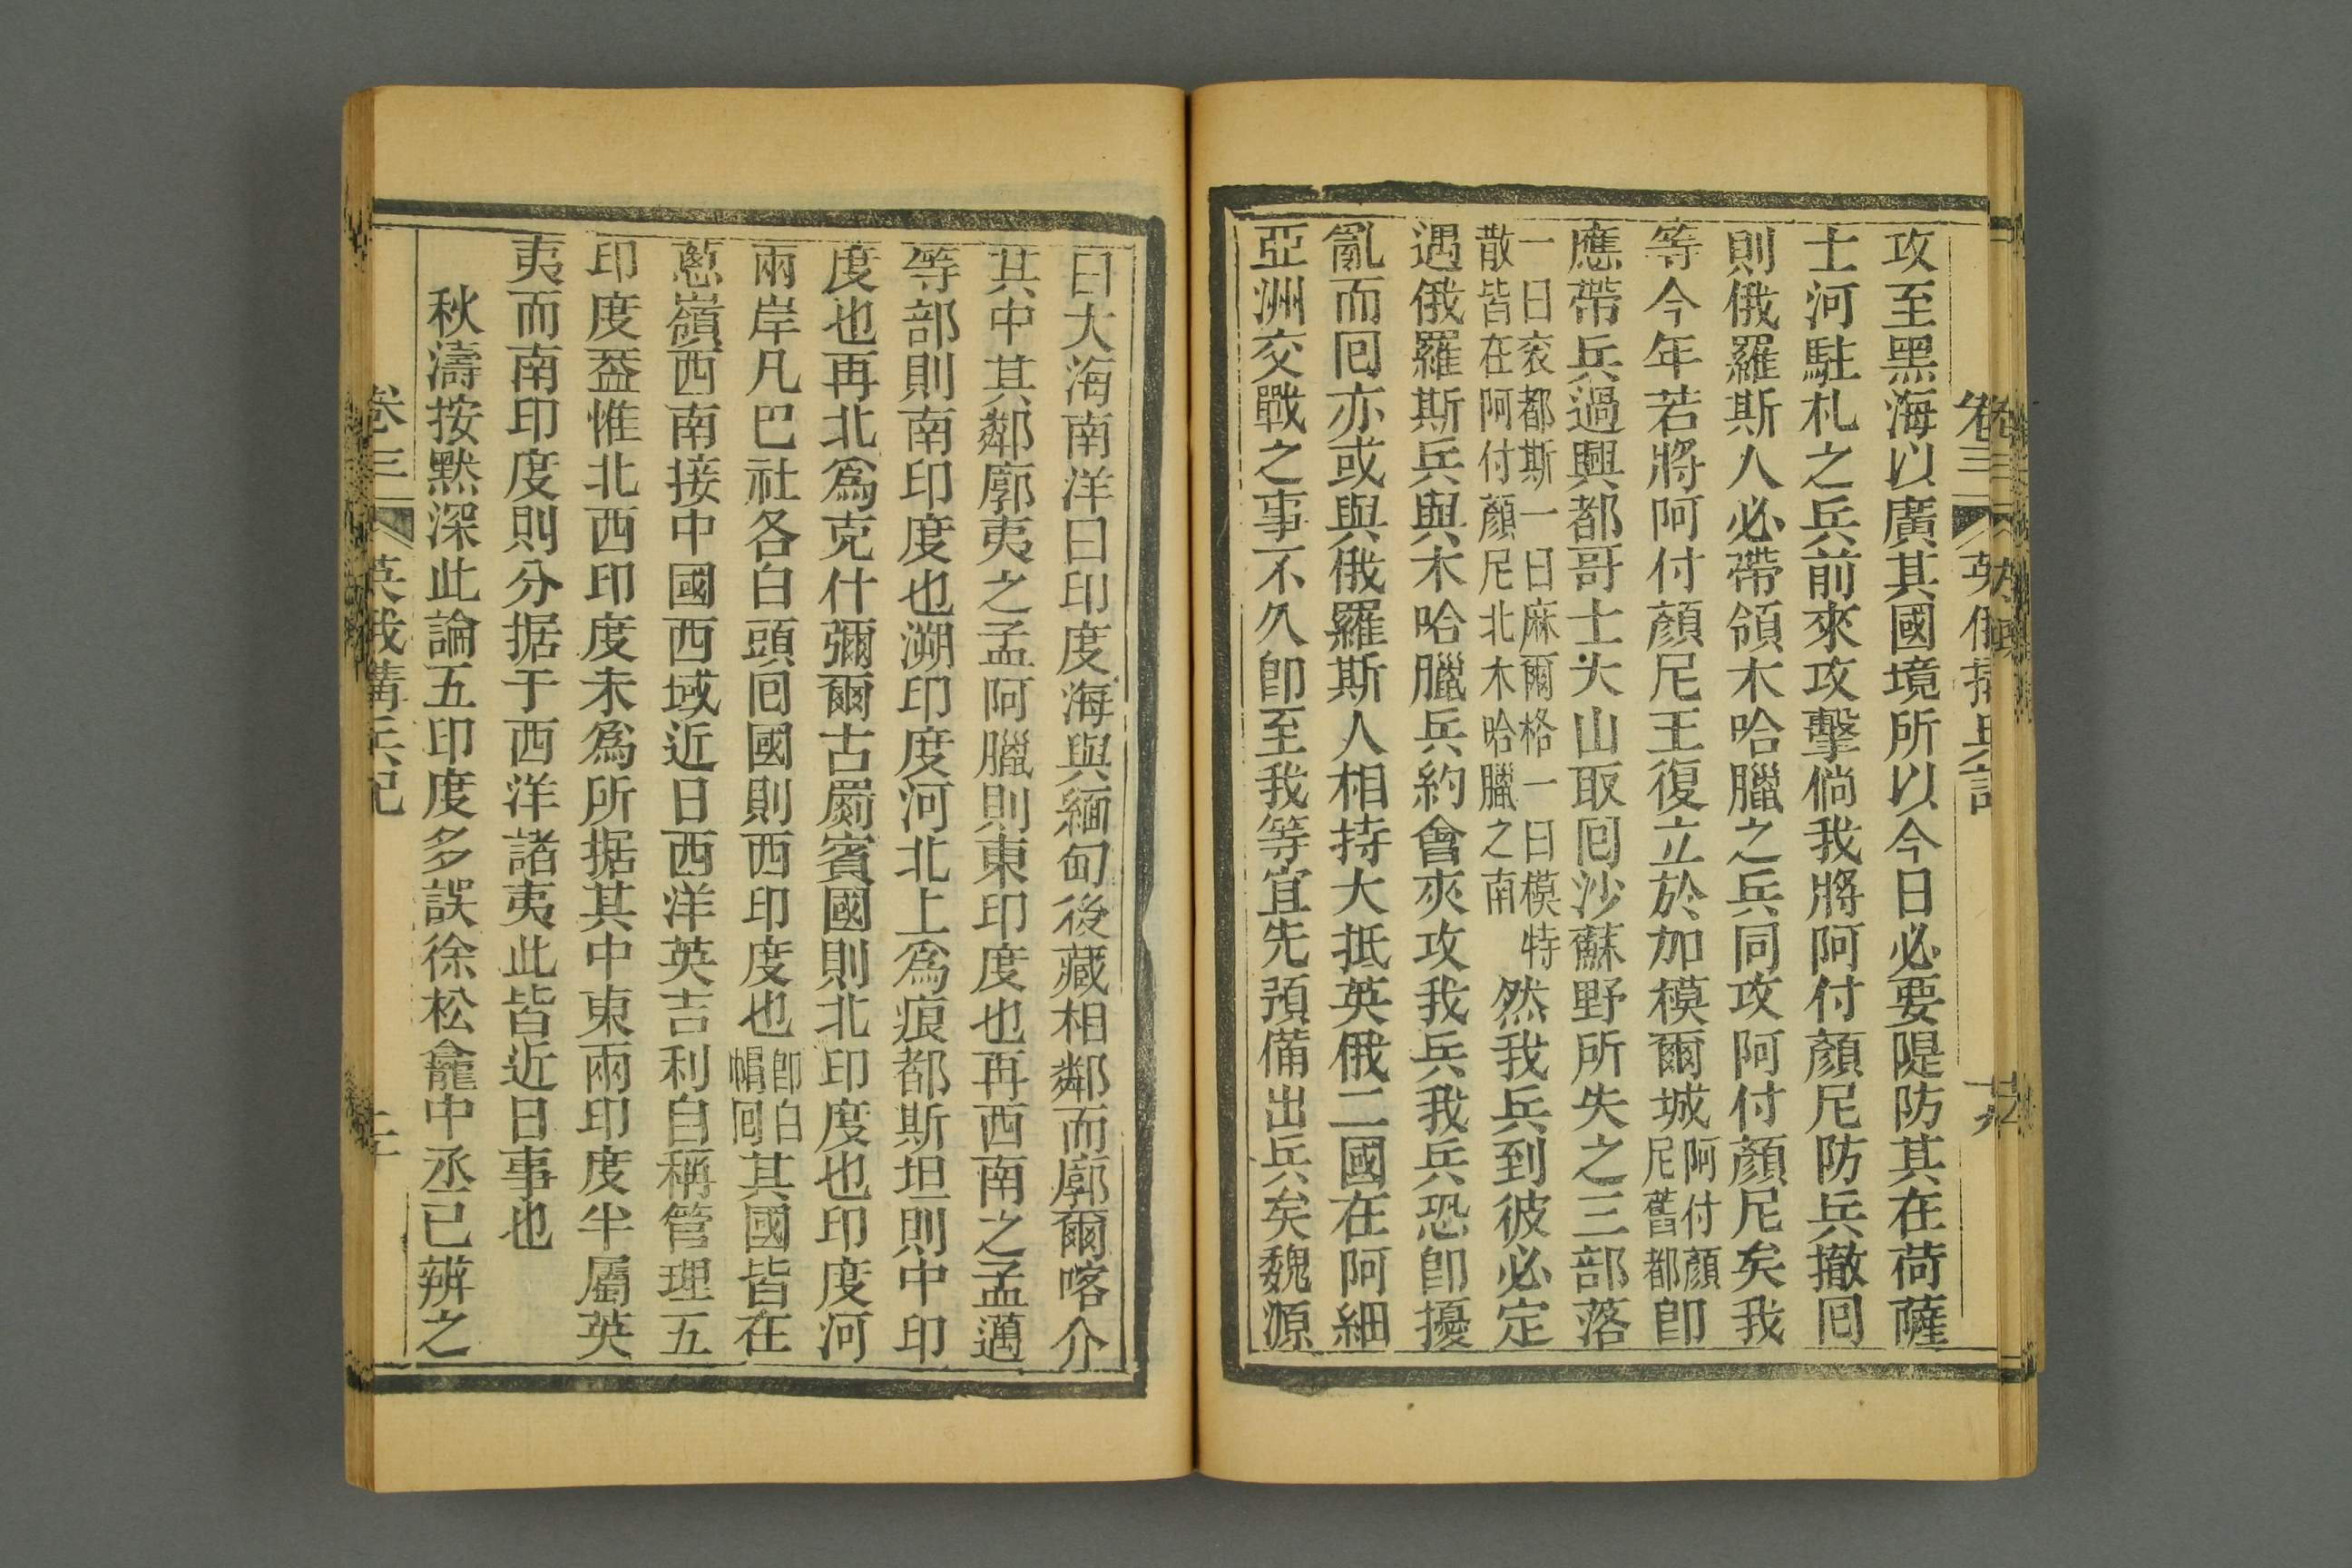 攻至黑海以廣其國境所以今日必要隄防其在荷薩
士河駐札之兵前來攻擊倘我將阿付顏尼防兵撤囘
則俄羅斯人必帶領木哈臘之兵同攻阿付顏尼矣我
等今年若將阿付顏尼王復立於加模爾城阿付顏尼舊都卽
應帶兵過興都哥士大山取囘沙蘇野所失之三部落
一曰衮都斯一曰麻爾格一曰模特散皆在阿付顏尼北木哈臘之南然我兵到彼必定
遇俄羅斯兵與木哈臘兵約會夾攻我兵我兵恐卽擾
亂而囘亦或與俄羅斯人相持大抵英俄二國在阿細
亞洲交戰之事不久卽至我等宜先預備出兵矣魏源
曰大海南洋曰印度海與緬甸後藏相鄰而廓爾喀介
其中其鄰廓夷之孟阿臘則東印度也再西南之孟邁
等部則南印度也溯印度河北上爲痕都斯坦則中印
度也再北爲克什彌爾古罽賓國則北印度也印度河
兩岸凡巴社各白頭囘國則西印度也卽白帽囘其國皆在
蔥嶺西南接中國西域近日西洋英吉利自稱管理五
印度葢惟北西印度未爲所据其中東兩印度半屬英
夷而南印度則分据于西洋諸夷此皆近日事也
秋濤按默深此論五印度多誤徐松龕中丞已辨之
卷三